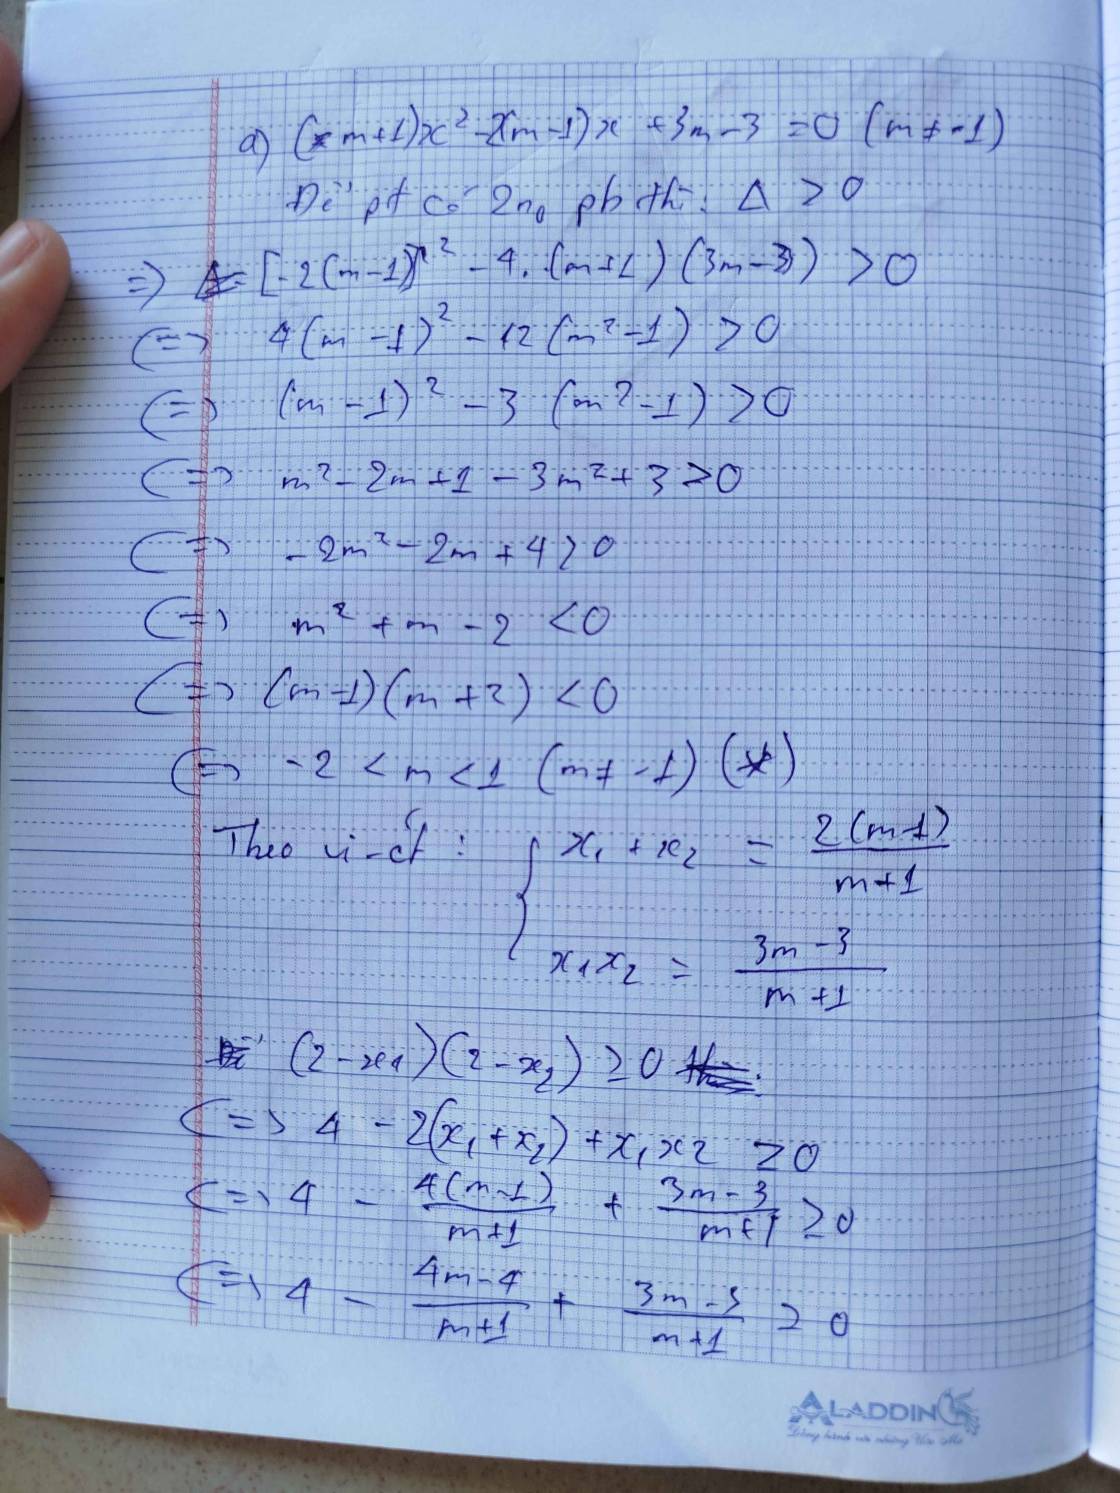 a) (m+1)x² - 2(m-1)x + 3m-3 = 0 (m ≠ -1)
Để pt có 2n₀ pb thì: Δ > 0
=> [-2(m-1)]² - 4.(m+1)(3m-3) > 0
<=> 4(m-1)² - 12(m²-1) > 0
<=> (m-1)² - 3(m²-1) > 0
<=> m² - 2m + 1 - 3m² + 3 > 0
<=> -2m² - 2m + 4 > 0
<=> m² + m - 2 < 0
<=> (m-1)(m+2) < 0
<=> -2 < m < 1 (m ≠ -1) (*)
Theo vi-ét: { x₁ + x₂ = 2(m-1)/m+1
x₁x₂ = 3m-3/m+1
(2-x₁)(2-x₂) ≥ 0
<=> 4 - 2(x₁+x₂) + x₁x₂ ≥ 0
<=> 4 - 4(m-1)/m+1 + 3m-3/m+1 ≥ 0
<=> 4 - 4m-4/m+1 + 3m-3/m+1 ≥ 0
ALADDIN